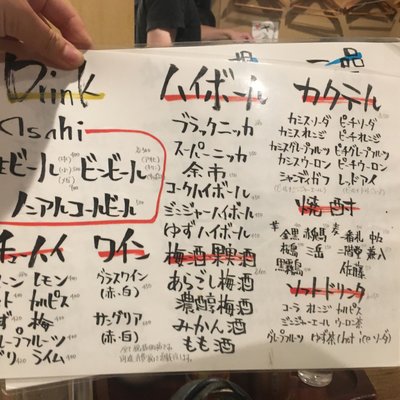 Drink
Asahi
ビール
ビンビール
ノンアルコールビール
チューハイ
レモン
カルピス
梅
ライム
ワイン
グラスワイン
(赤・白)
サングリア
(赤・白)
ハイボール
ブラックニッカ
スーパーニッカ
余市
コークハイボール
ジンジャーハイボール
ゆずハイボール
梅酒 果実酒
あらごし梅酒
濃醇梅酒
みかん酒
もも酒
一品
カクテル
カシスソーダ ピーチソーダ
カシスオレンジ ピーチオレンジ
カシスグレープフルーツ ピーチグレープフルーツ
カシスウーロン ピーチウーロン
シャンディガフ レッドアイ
焼酎
三岳
佐藤
黒霧島
ソフトドリンク
コーラ オレンジ カルピス
ジンジャーエール ウーロン茶
グレープフルーツ ゆず茶(hot ice ソーダ)